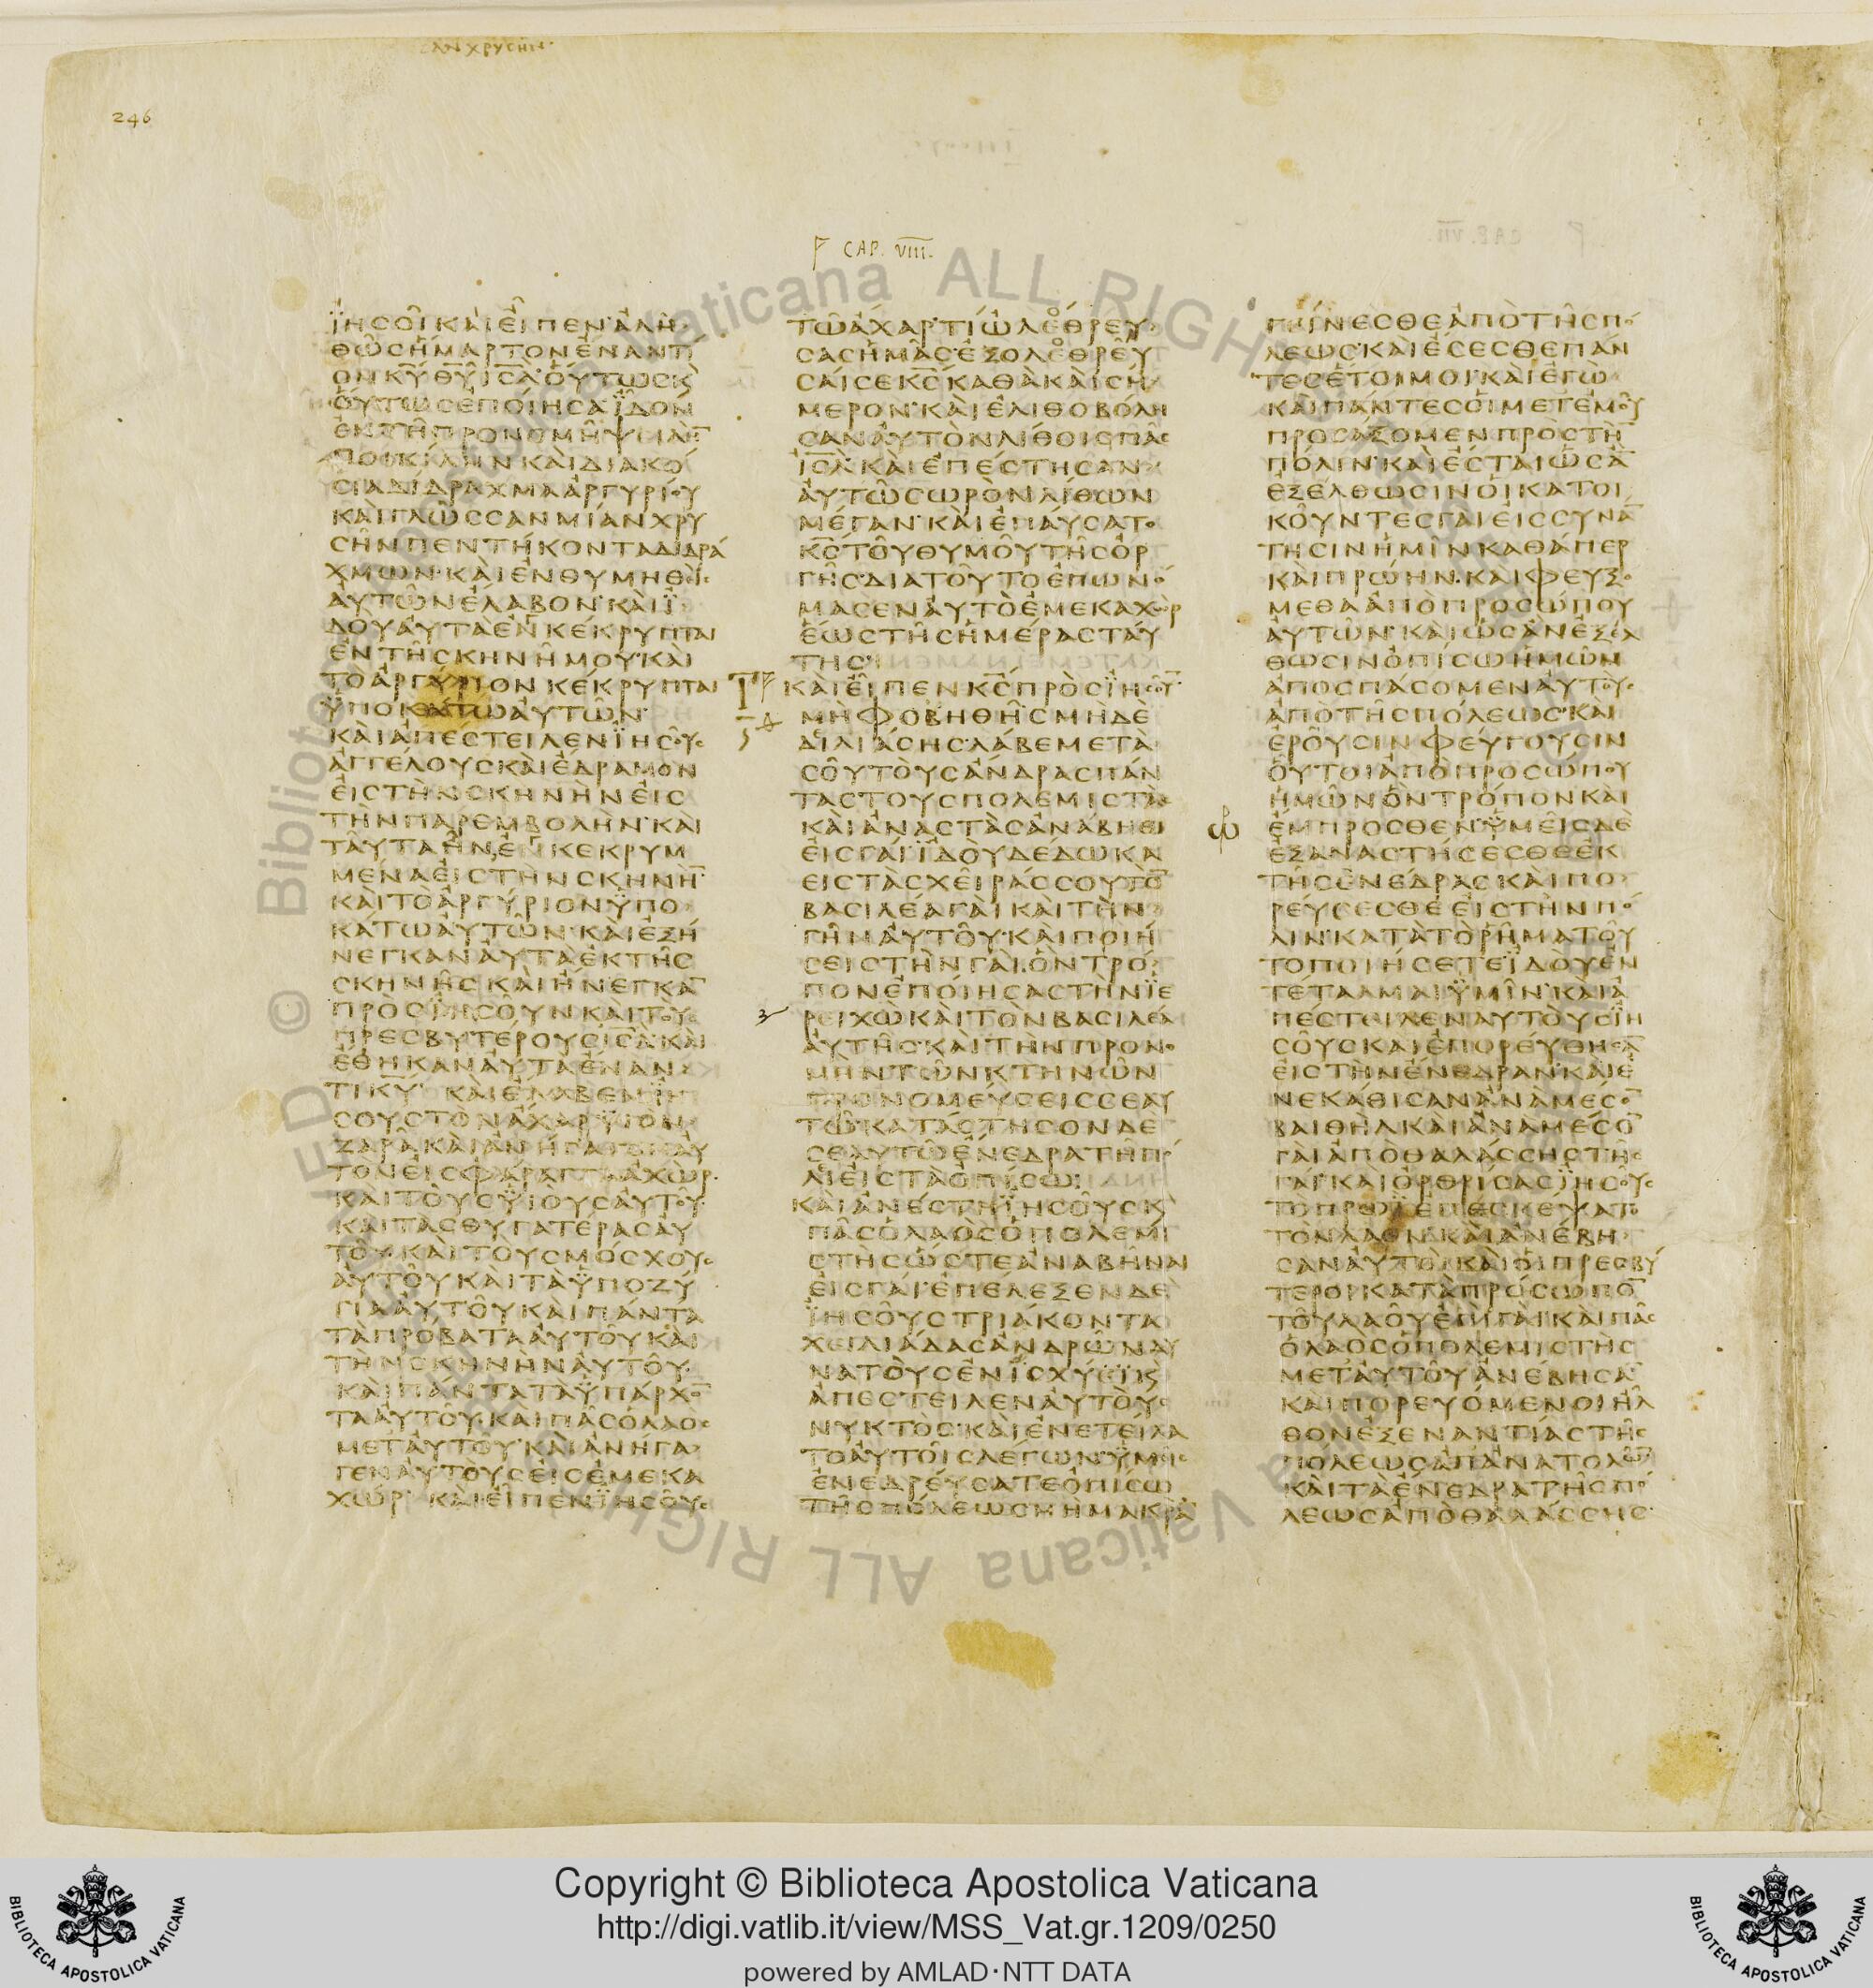 ΑΝΧΡΥCΗΝ·
246
CAP. VIII.
ΪΗCΟΙΚΑΙΕΙΠΕΝΑΛΗ
ΘΩCΗΜΑΡΤΟΝΕΝΑΝΤΙ
ΟΝΚΥΘΥΙCΛΟΥΤΩCΚ
ΟΥΤΩCΕΠΟΙΗCΑΪΔΟΝ
ΕΝΤΗΠΡΟΝΟΜΗΨΙΛΗ
ΠΟΙΚΙΛΗΝΚΑΙΔΙΑΚΟ
CΙΑΔΙΔΡΑΧΜΑΑΡΓΥΡΙΟΥ
ΚΑΙΓΛΩCCΑΝΜΙΑΝΧΡΥ
CΗΝΠΕΝΤΗΚΟΝΤΑΔΙΔΡΑ
ΧΜΩΝΚΑΙΕΝΘΥΜΗΘΙC
ΑΥΤΩΝΕΛΑΒΟΝΚΑΙΪ
ΔΟΥΑΥΤΑΕΝΚΕΚΡΥΠΤΑΙ
ΕΝΤΗCΚΗΝΗΜΟΥΚΑΙ
ΤΟΑΡΓΥΡΙΟΝΚΕΚΡΥΠΤΑΙ
ΫΠΟΚΑΤΩΑΥΤΩΝ
ΚΑΙΑΠΕCΤΕΙΛΕΝΪΗCΟΥC
ΑΓΓΕΛΟΥCΚΑΙΕΔΡΑΜΟΝ
ΕΙCΤΗΝCΚΗΝΗΝΕΙC
ΤΗΝΠΑΡΕΜΒΟΛΗΝΚΑΙ
ΤΑΥΤΑΗΝΕΝΚΕΚΡΥΜ
ΜΕΝΑΕΙCΤΗΝCΚΗΝΗ
ΚΑΙΤΟΑΡΓΥΡΙΟΝΫΠΟ
ΚΑΤΩΑΥΤΩΝΚΑΙΕΞΗ
ΝΕΓΚΑΝΑΥΤΑΕΚΤΗC
CΚΗΝΗCΚΑΙΗΝΕΓΚΑ
ΠΡΟCΪΗCΟΥΝΚΑΙΤΟΥC
ΠΡΕCΒΥΤΕΡΟΥCΙCΛΚΑΙ
ΕΘΗΚΑΝΑΥΤΑΕΝΑΝ
ΤΙΚΥ ΚΑΙΕΛΑΒΕΝΪΗ
CΟΥCΤΟΝΑΧΑΡΫΙΟΝ
ΖΑΡΑΚΑΙΑΝΗΓΑΓΕΝΑΥ
ΤΟΝΕΙCΦΑΡΑΓΓΑΑΧΩΡ
ΚΑΙΤΟΥCΫΙΟΥCΑΥΤΟΥ
ΚΑΙΤΑCΘΥΓΑΤΕΡΑCΑΥ
ΤΟΥΚΑΙΤΟΥCΜΟCΧΟΥC
ΑΥΤΟΥΚΑΙΤΑΫΠΟΖΥ
ΓΙΑΑΥΤΟΥΚΑΙΠΑΝΤΑ
ΤΑΠΡΟΒΑΤΑΑΥΤΟΥΚΑΙ
ΤΗΝCΚΗΝΗΝΑΥΤΟΥ
ΚΑΙΠΑΝΤΑΤΑΫΠΑΡΧΟ
ΤΑΑΥΤΟΥΚΑΙΠΑCΟΛΑΟC
ΜΕΤΑΥΤΟΥΚΑΙΑΝΗΓΑ
ΓΕΝΑΥΤΟΥCΕΙCΕΜΕΚΑ
ΧΩΡ ΚΑΙΕΙΠΕΝΪΗCΟΥC
ΤΩΑΧΑΡΤΙΩΛΕΘΡΕΥ
CΑCΗΜΑCΕΞΟΛΕΘΡΕΥ
CΑΙCΕΚCΚΑΘΑΚΑΙCΗ
ΜΕΡΟΝΚΑΙΕΛΙΘΟΒΟΛΗ
CΑΝΑΥΤΟΝΛΙΘΟΙCΠΑC
ΙCΛΚΑΙΕΠΕCΤΗCΑΝ
ΑΥΤΩCΩΡΟΝΛΙΘΩΝ
ΜΕΓΑΝΚΑΙΕΠΑΥCΑΤΟ
ΚCΤΟΥΘΥΜΟΥΤΗCΟΡ
ΓΗCΔΙΑΤΟΥΤΟΕΠΩΝΟ
ΜΑCΕΝΑΥΤΟΕΜΕΚΑΧΩΡ
ΕΩCΤΗCΗΜΕΡΑCΤΑΥ
ΤΗC
ΚΑΙΕΙΠΕΝΚCΠΡΟCΪΗCΟΥ
ΜΗΦΟΒΗΘΗCΜΗΔΕ
ΔΙΛΙΑCΗCΛΑΒΕΜΕΤΑ
CΟΥΤΟΥCΑΝΔΡΑCΠΑΝ
ΤΑCΤΟΥCΠΟΛΕΜΙCΤΑC
ΚΑΙΑΝΑCΤΑCΑΝΑΒΗΘΙ
ΕΙCΓΑΙΪΔΟΥΔΕΔΩΚΑ
ΕΙCΤΑCΧΕΙΡΑCCΟΥΤΟ
ΒΑCΙΛΕΑΓΑΙΚΑΙΤΗΝ
ΓΗΝΑΥΤΟΥΚΑΙΠΟΙΗ
CΕΙCΤΗΝΓΑΙΟΝΤΡΟ
ΠΟΝΕΠΟΙΗCΑCΤΗΝΪΕ
ΡΕΙΧΩΚΑΙΤΟΝΒΑCΙΛΕΑ
ΑΥΤΗCΚΑΙΤΗΝΠΡΟΝΟ
ΜΗΝΤΩΝΚΤΗΝΩΝ
ΠΡΟΝΟΜΕΥCΕΙCCΕΑΥ
ΤΩΚΑΤΑCΤΗCΟΝΔΕ
CΕΑΥΤΩΕΝΕΔΡΑΤΗΠΟ
ΛΕΙΕΙCΤΑΟΠΙCΩ
ΚΑΙΑΝΕCΤΗΪΗCΟΥCΚ
ΠΑCΟΛΑΟCΟΠΟΛΕΜΙ
CΤΗCΩCΤΕΑΝΑΒΗΝΑΙ
ΕΙCΓΑΙΕΠΕΛΕΞΕΝΔΕ
ΪΗCΟΥCΤΡΙΑΚΟΝΤΑ
ΧΕΙΛΙΑΔΑCΑΝΔΡΩΝΔΥ
ΝΑΤΟΥCΕΝΪCΧΥΪΚ
ΑΠΕCΤΕΙΛΕΝΑΥΤΟΥC
ΝΥΚΤΟCΚΑΙΕΝΕΤΕΙΛΑ
ΤΟΑΥΤΟΙCΛΕΓΩΝΫΜΙC
ΕΝΕΔΡΕΥCΑΤΕΟΠΙCΩ
ΤΗCΠΟΛΕΩCΜΗΜΑΚΡΑ
ΓΕΙΝΕCΘΕΑΠΟΤΗCΠΟ
ΛΕΩCΚΑΙΕCΕCΘΕΠΑΝ
ΤΕCΕΤΟΙΜΟΙΚΑΙΕΓΩ
ΚΑΙΠΑΝΤΕCΟΙΜΕΤΕΜΟΥ
ΠΡΟCΑΞΟΜΕΝΠΡΟCΤΗ
ΠΟΛΙΝΚΑΙΕCΤΑΙΩCΑ
ΕΞΕΛΘΩCΙΝΟΙΚΑΤΟΙ
ΚΟΥΝΤΕCΓΑΙΕΙCCΥΝΑ
ΤΗCΙΝΗΜΙΝΚΑΘΑΠΕΡ
ΚΑΙΠΡΩΗΝΚΑΙΦΕΥΞΟ
ΜΕΘΑΑΠΟΠΡΟCΩΠΟΥ
ΑΥΤΩΝΚΑΙΩCΑΝΕΞΕΛ
ΘΩCΙΝΟΠΙCΩΗΜΩΝ
ΑΠΟCΠΑCΟΜΕΝΑΥΤΟΥC
ΑΠΟΤΗCΠΟΛΕΩCΚΑΙ
ΕΡΟΥCΙΝΦΕΥΓΟΥCΙΝ
ΟΥΤΟΙΑΠΟΠΡΟCΩΠΟΥ
ΗΜΩΝΟΝΤΡΟΠΟΝΚΑΙ
ΕΜΠΡΟCΘΕΝΫΜΕΙCΔΕ
ΕΞΑΝΑCΤΗCΕCΘΕΕΚ
ΤΗCΕΝΕΔΡΑCΚΑΙΠΟ
ΡΕΥCΕCΘΕΕΙCΤΗΝΠΟ
ΛΙΝΚΑΤΑΤΟΡΗΜΑΤΟΥ
ΤΟΠΟΙΗCΕΤΕΪΔΟΥΕΝ
ΤΕΤΑΛΜΑΙΫΜΙΝΚΑΙΑ
ΠΕCΤΕΙΛΕΝΑΥΤΟΥCΪΗ
CΟΥCΚΑΙΕΠΟΡΕΥΘΗCΑ
ΕΙCΤΗΝΕΝΕΔΡΑΝΚΑΙΕ
ΝΕΚΑΘΙCΑΝΑΝΑΜΕCΟ
ΒΑΙΘΗΛΚΑΙΑΝΑΜΕCΟ
ΓΑΙΑΠΟΘΑΛΑCCΗCΤΗC
ΓΑΙΚΑΙΟΡΘΡΙCΑCΪΗCΟΥC
ΤΟΠΡΩΪΕΠΕCΚΕΨΑΤΟ
ΤΟΝΛΑΟΝΚΑΙΑΝΕΒΗ
CΑΝΑΥΤΟΙΚΑΙΟΙΠΡΕCΒΥ
ΤΕΡΟΙΚΑΤΑΠΡΟCΩΠΟ
ΤΟΥΛΑΟΥΕΠΙΓΑΙΚΑΙΠΑC
ΟΛΑΟCΟΠΟΛΕΜΙCΤΗC
ΜΕΤΑΥΤΟΥΑΝΕΒΗCΑ
ΚΑΙΠΟΡΕΥΟΜΕΝΟΙΗΛ
ΘΟΝΕΞΕΝΑΝΤΙΑCΤΗC
ΠΟΛΕΩCΑΠΑΝΑΤΟΛΩ
ΚΑΙΤΑΕΝΕΔΡΑΤΗCΠΟ
ΛΕΩCΑΠΟΘΑΛΑCCΗC
© Biblioteca Vaticana ALL RIGHTS RESERVED
Copyright © Biblioteca Apostolica Vaticana
http://digi.vatlib.it/view/MSS_Vat.gr.1209/0250
powered by AMLAD·NTT DATA
BIBLIOTECA APOSTOLICA VATICANA
BIBLIOTECA APOSTOLICA VATICANA